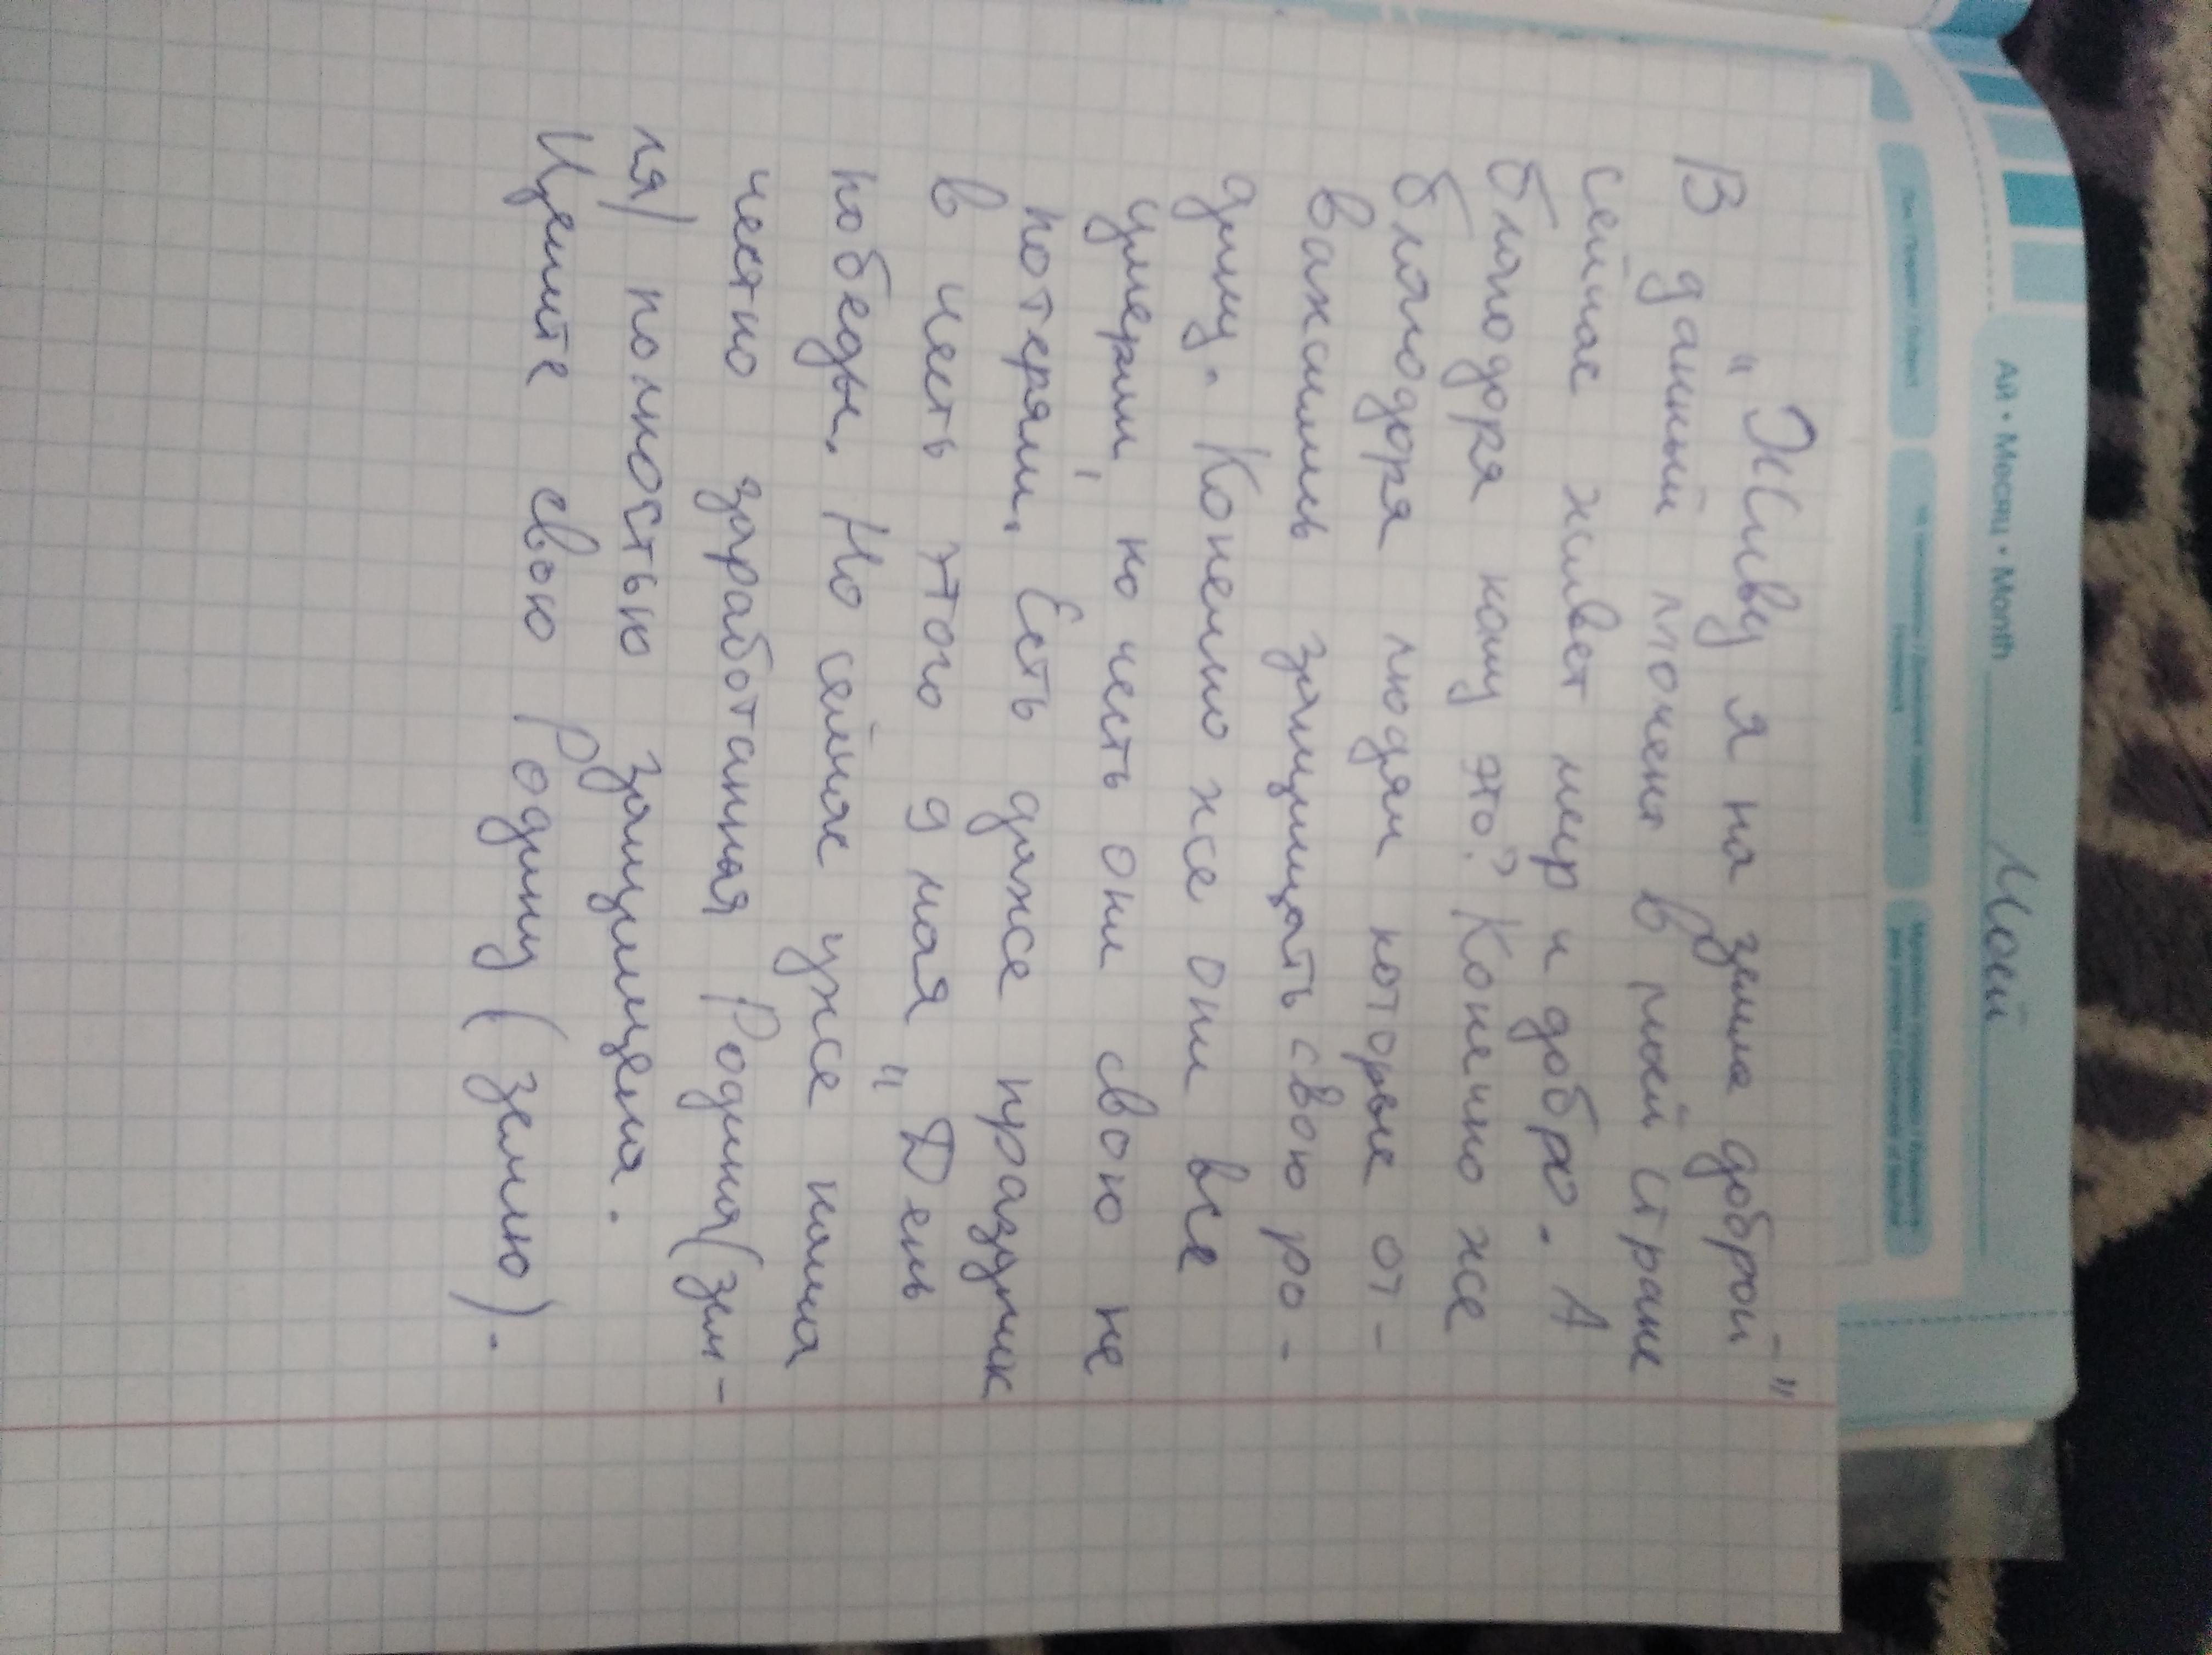 Ай • Месяц • Month Моей
"Живу я на земле доброй"
В данный момент в моей стране
сейчас живет мир и добро. А
благодоря кому это? Конечно же
благодоря людям которые от-
важились защищать свою ро-
дину. Конечно же они все
умерли, но честь они свою не
потеряли. Есть даже праздник
в честь этого 9 мая "День
победы. Но сейчас уже наша
честно заработанная Родина (зем-
ля) полностью защищена.
Цените свою Родину (землю).